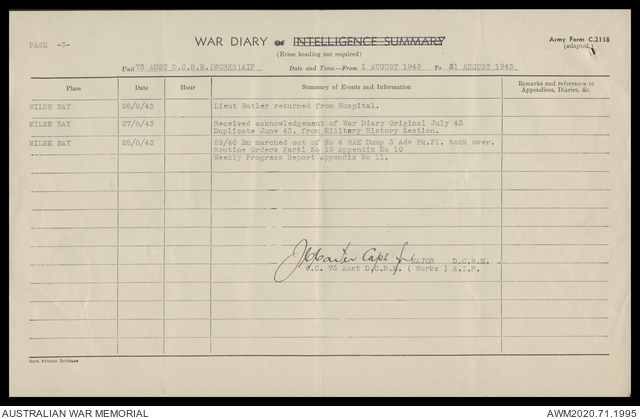 PAGE -3-
WAR DIARY or INTELLIGENCE SUMMARY
(Erase heading not required)
Army Form C.2118
(adapted.)
Unit 73 AUST D.C.R.E.(WORKS)AIF Date and Time.—From 1 AUGUST 1943 To 31 AUGUST 1943
Place Date Hour Summary of Events and Information Remarks and references to Appendices, Diaries, &c.
MILNE BAY 26/8/43 Lieut Butler returned from Hospital.
MILNE BAY 27/8/43 Received acknowledgement of War Diary Original July 43
Duplicate June 43. from Military History Section.
MILNE BAY 28/8/43 29/46 Bn marched out of No 4 RAE Dump 3 Adv Pk.Pl. took over.
Routine Orders Part1 No 19 Appendix No 10
Weekly Progress Report Appendix No 11.
Capt for MAJOR D.C.R.E.
O.C. 73 Aust D.C.R.E. ( Works ) A.I.F.
Govt. Printer, Brisbane
AUSTRALIAN WAR MEMORIAL AWM2020.71.1995